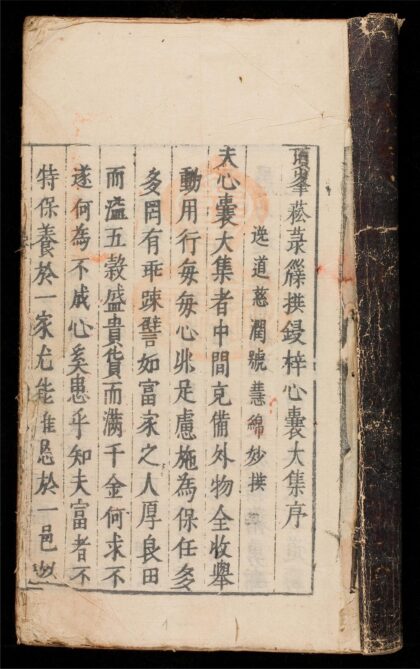 撰鋟梓心囊大集序
逸道慈潤號慧綿妙撰
夫心囊大集者中間克備外物全收舉
動用行每每心足慮施為保任多
多罔有乖踈譬如富家之人厚良田
而溢五穀盛貴貨而滿千金何求不
遂何為不成心奚患乎知夫富者不
特保養於一家尤能恩於一邑